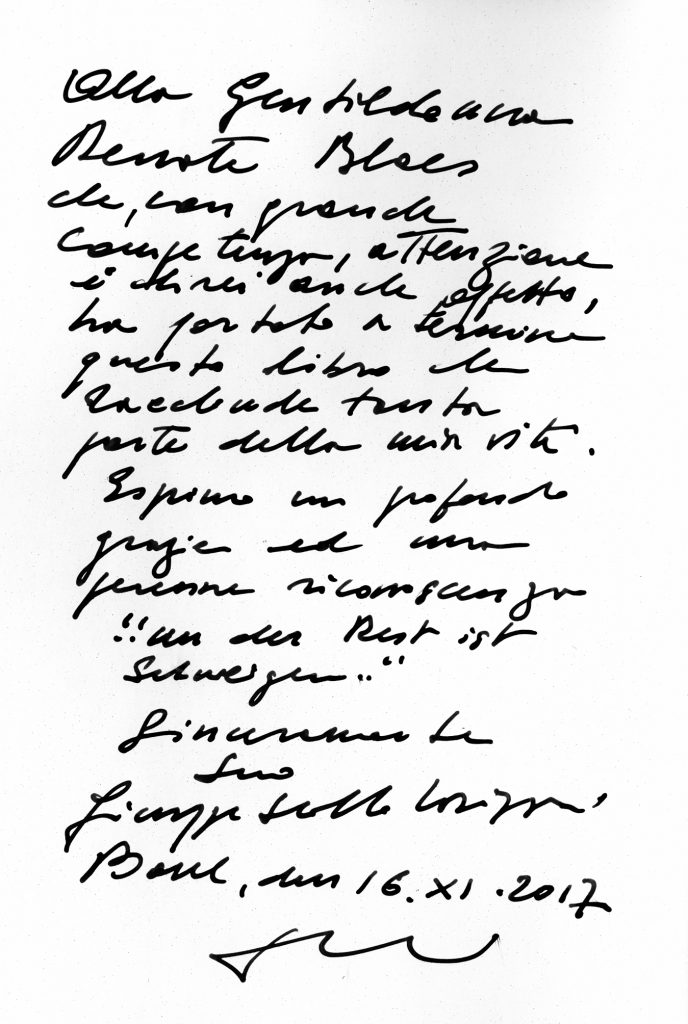 Alla Gentildonna
Renate Blaes
che, con grande
competenza, attenzione
e direi anche affetto,
ha portato a termine
questo libro che
racchiude tanta
parte della mia vita.
Esprimo un profondo
grazie ed una
perenne riconoscenza
"un der Rest ist
Schweigen.."
Sinceramente
Suo
Giuseppe
Basel, den 16.XI.2017